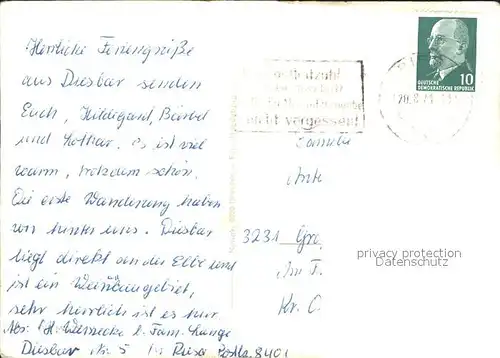 Herrliche Feriengrüße
aus Diesbar senden
Euch, Hildegard, Bärbel
und Lothar. Es ist viel
warm, trotzdem schön.
Die erste Wanderung haben
wir hinter uns. Diesbar
liegt direkt an der Elbe und
ist ein Weinbaugebiet,
sehr herrlich ist es hier
Abs. H. Wernecke b. Fam. Lange
Diesbar Nr. 5 Kr. Riesa PostLz. 8401
10
DEUTSCHE
DEMOKRATISCHE REPUBLIK
nicht vergessen
Familie
3231 Gro
Am F.
Kr. O
privacy protection
Datenschutz